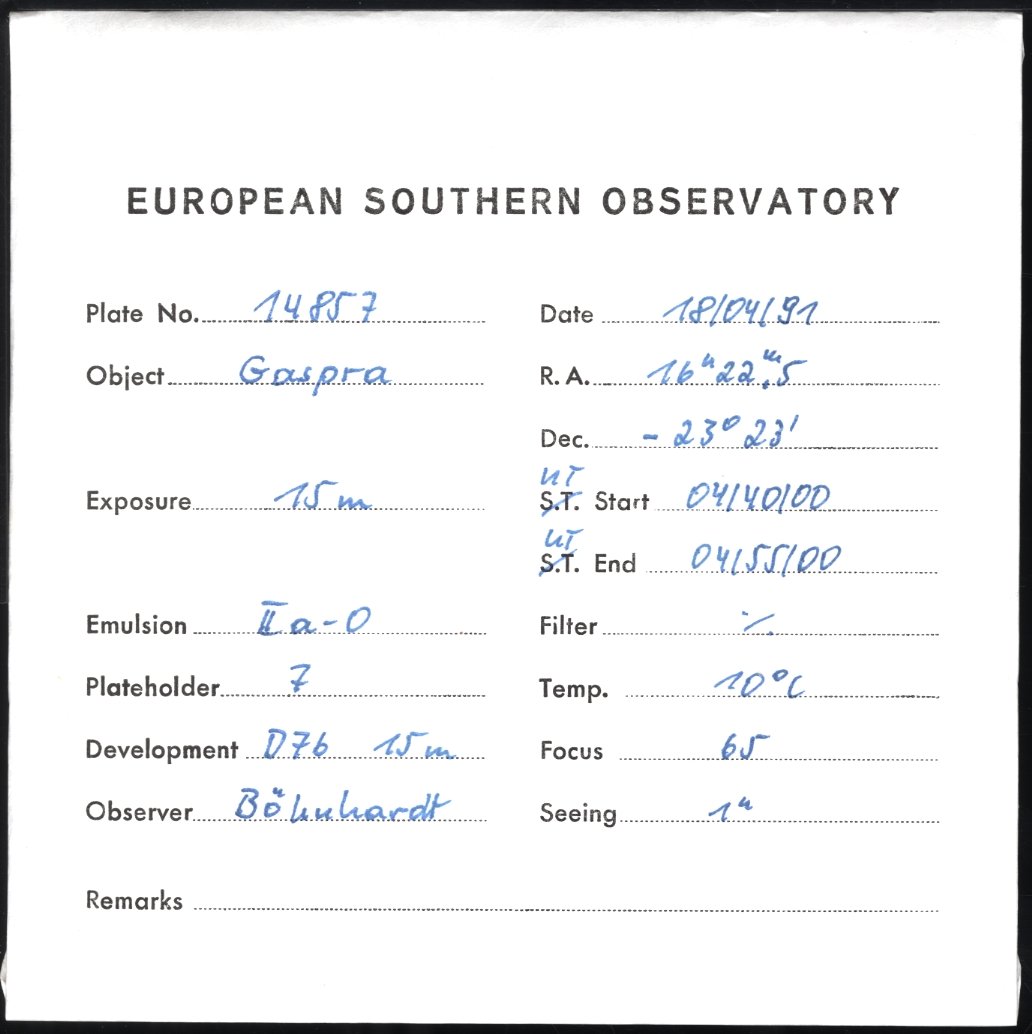 EUROPEAN SOUTHERN OBSERVATORY
Plate No. 14857 Date 18/04/91
Object Gaspra R.A. 16ʰ22ᵐ.5
Dec. - 23° 23'
UT
Exposure 15m S.T. Start 04/40/00
UT
S.T. End 04/55/00
Emulsion IIa-O Filter ./.
Plateholder 7 Temp. 10°C
Development D76 15m Focus 65
Observer Böhnhardt Seeing 1"
Remarks